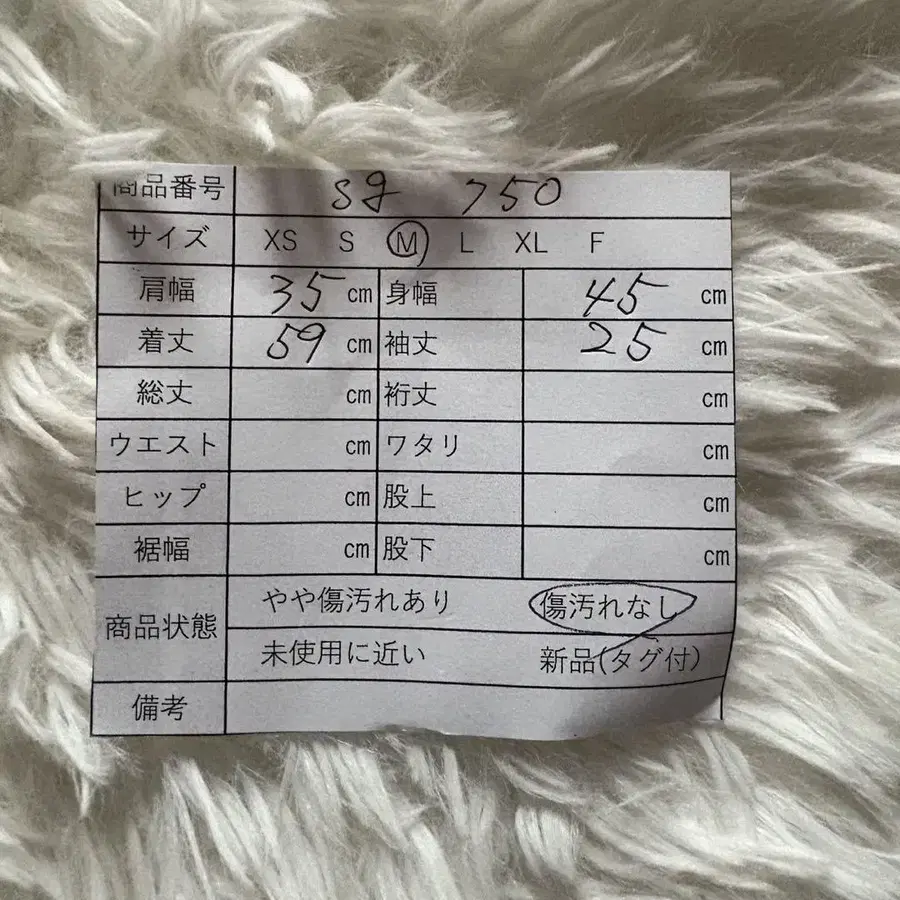 商品番号 sg 750
サイズ XS S M L XL F
肩幅 35 cm 身幅 45 cm
着丈 59 cm 袖丈 25 cm
総丈 cm 裄丈 cm
ウエスト cm ワタリ cm
ヒップ cm 股上 cm
裾幅 cm 股下 cm
商品状態 やや傷汚れあり 傷汚れなし
未使用に近い 新品(タグ付)
備考